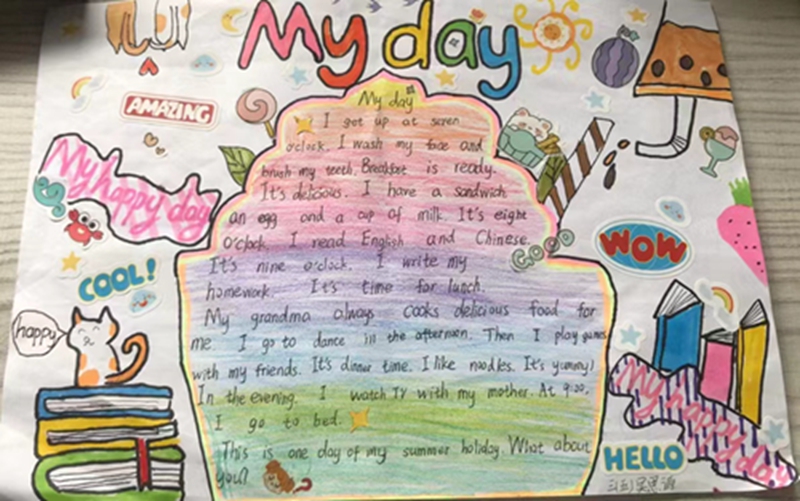 My day
AMAZING
My happy day
COOL!
happy
My day
I get up at seven
o'clock. I wash my face and
brush my teeth. Breakfast is ready.
It's delicious. I have a sandwich
an egg and a cup of milk. It's eight
o'clock. I read English and Chinese.
It's nine o'clock. I write my
homework. It's time for lunch.
My grandma always cooks delicious food for
me. I go to dance in the afternoon. Then I play games
with my friends. It's dinner time. I like noodles. It's yummy!
In the evening. I watch TV with my mother. At 9:20,
I go to bed.
This is one day of my summer holiday. What about
you?
GOOD
WOW
My happy day
HELLO